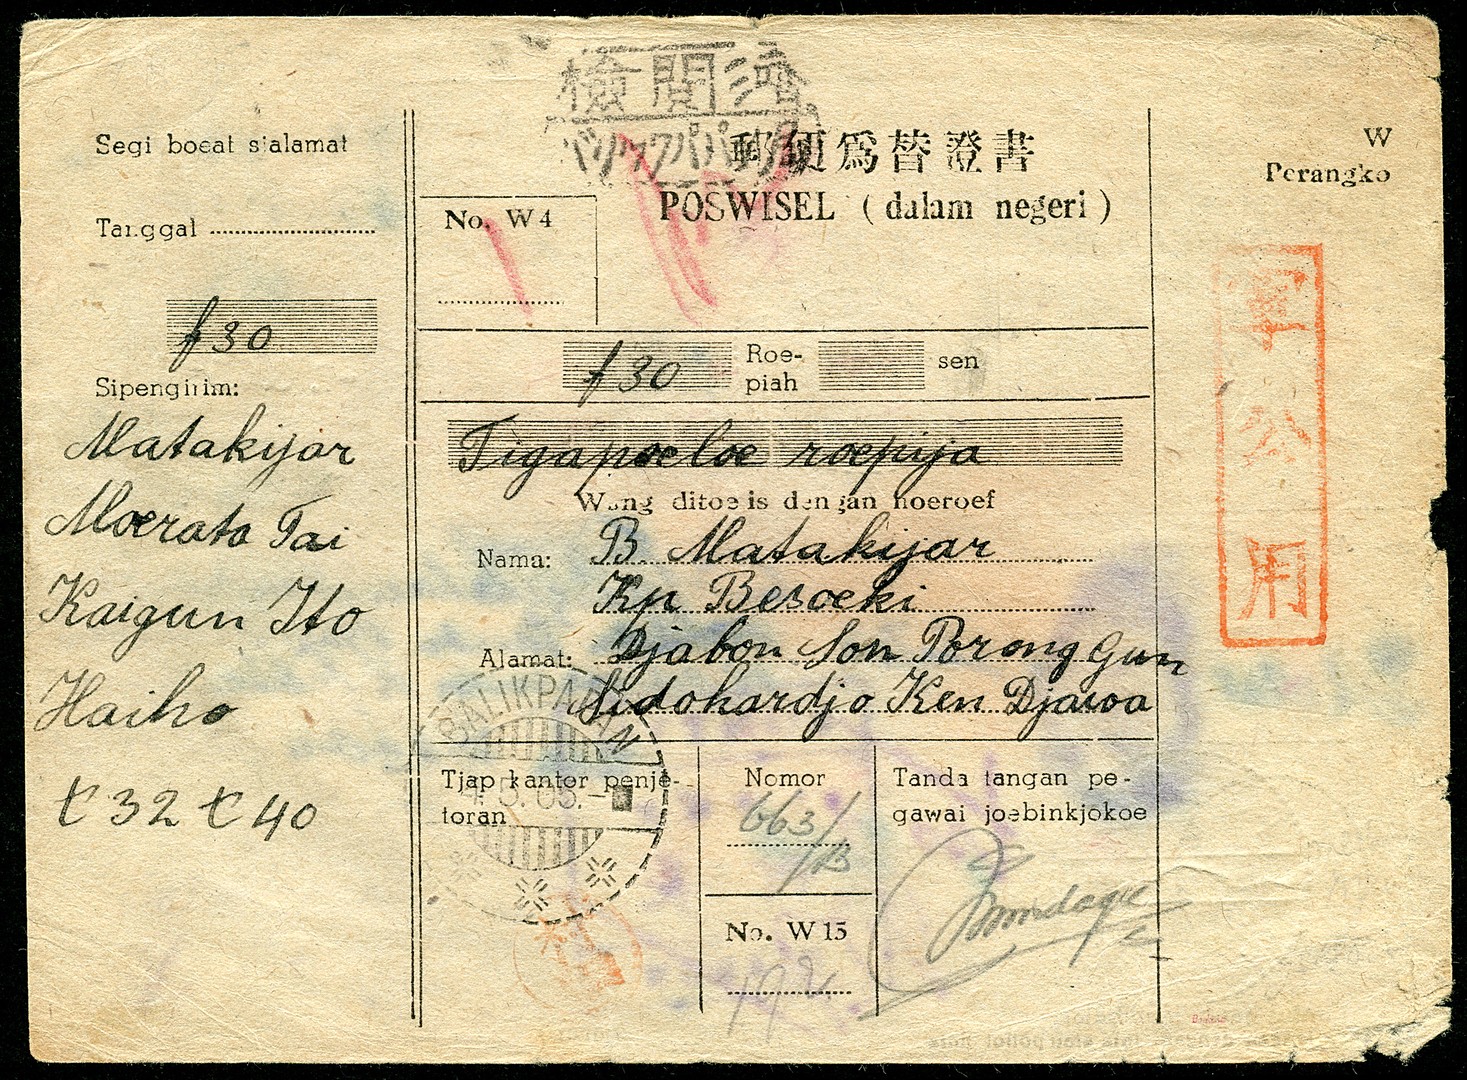 Segi boeat sialamat
Tanggal
f 30
Sipengirim:
Matakijar
Moerato Tai
Kaigun Ito
Haiho
t 32 t 40
検閲済
バリックパパン
郵便爲替證書
POSWISEL (dalam negeri)
No. W4
f 30 Roe-
piah sen
Tigapoeloe roepija
Wang ditoelis dengan hoeroef
Nama: B Matakijar
Kp Besoeki
Alamat: Djabon Son Porong Gun
Sidohardjo Ken Djawa
BALIKPAPAN
Tjap kantor penje-
toran
Nomor
663/B
No. W 15
Tanda tangan pe-
gawai joebinkjokoe
W
Perangko
軍公用